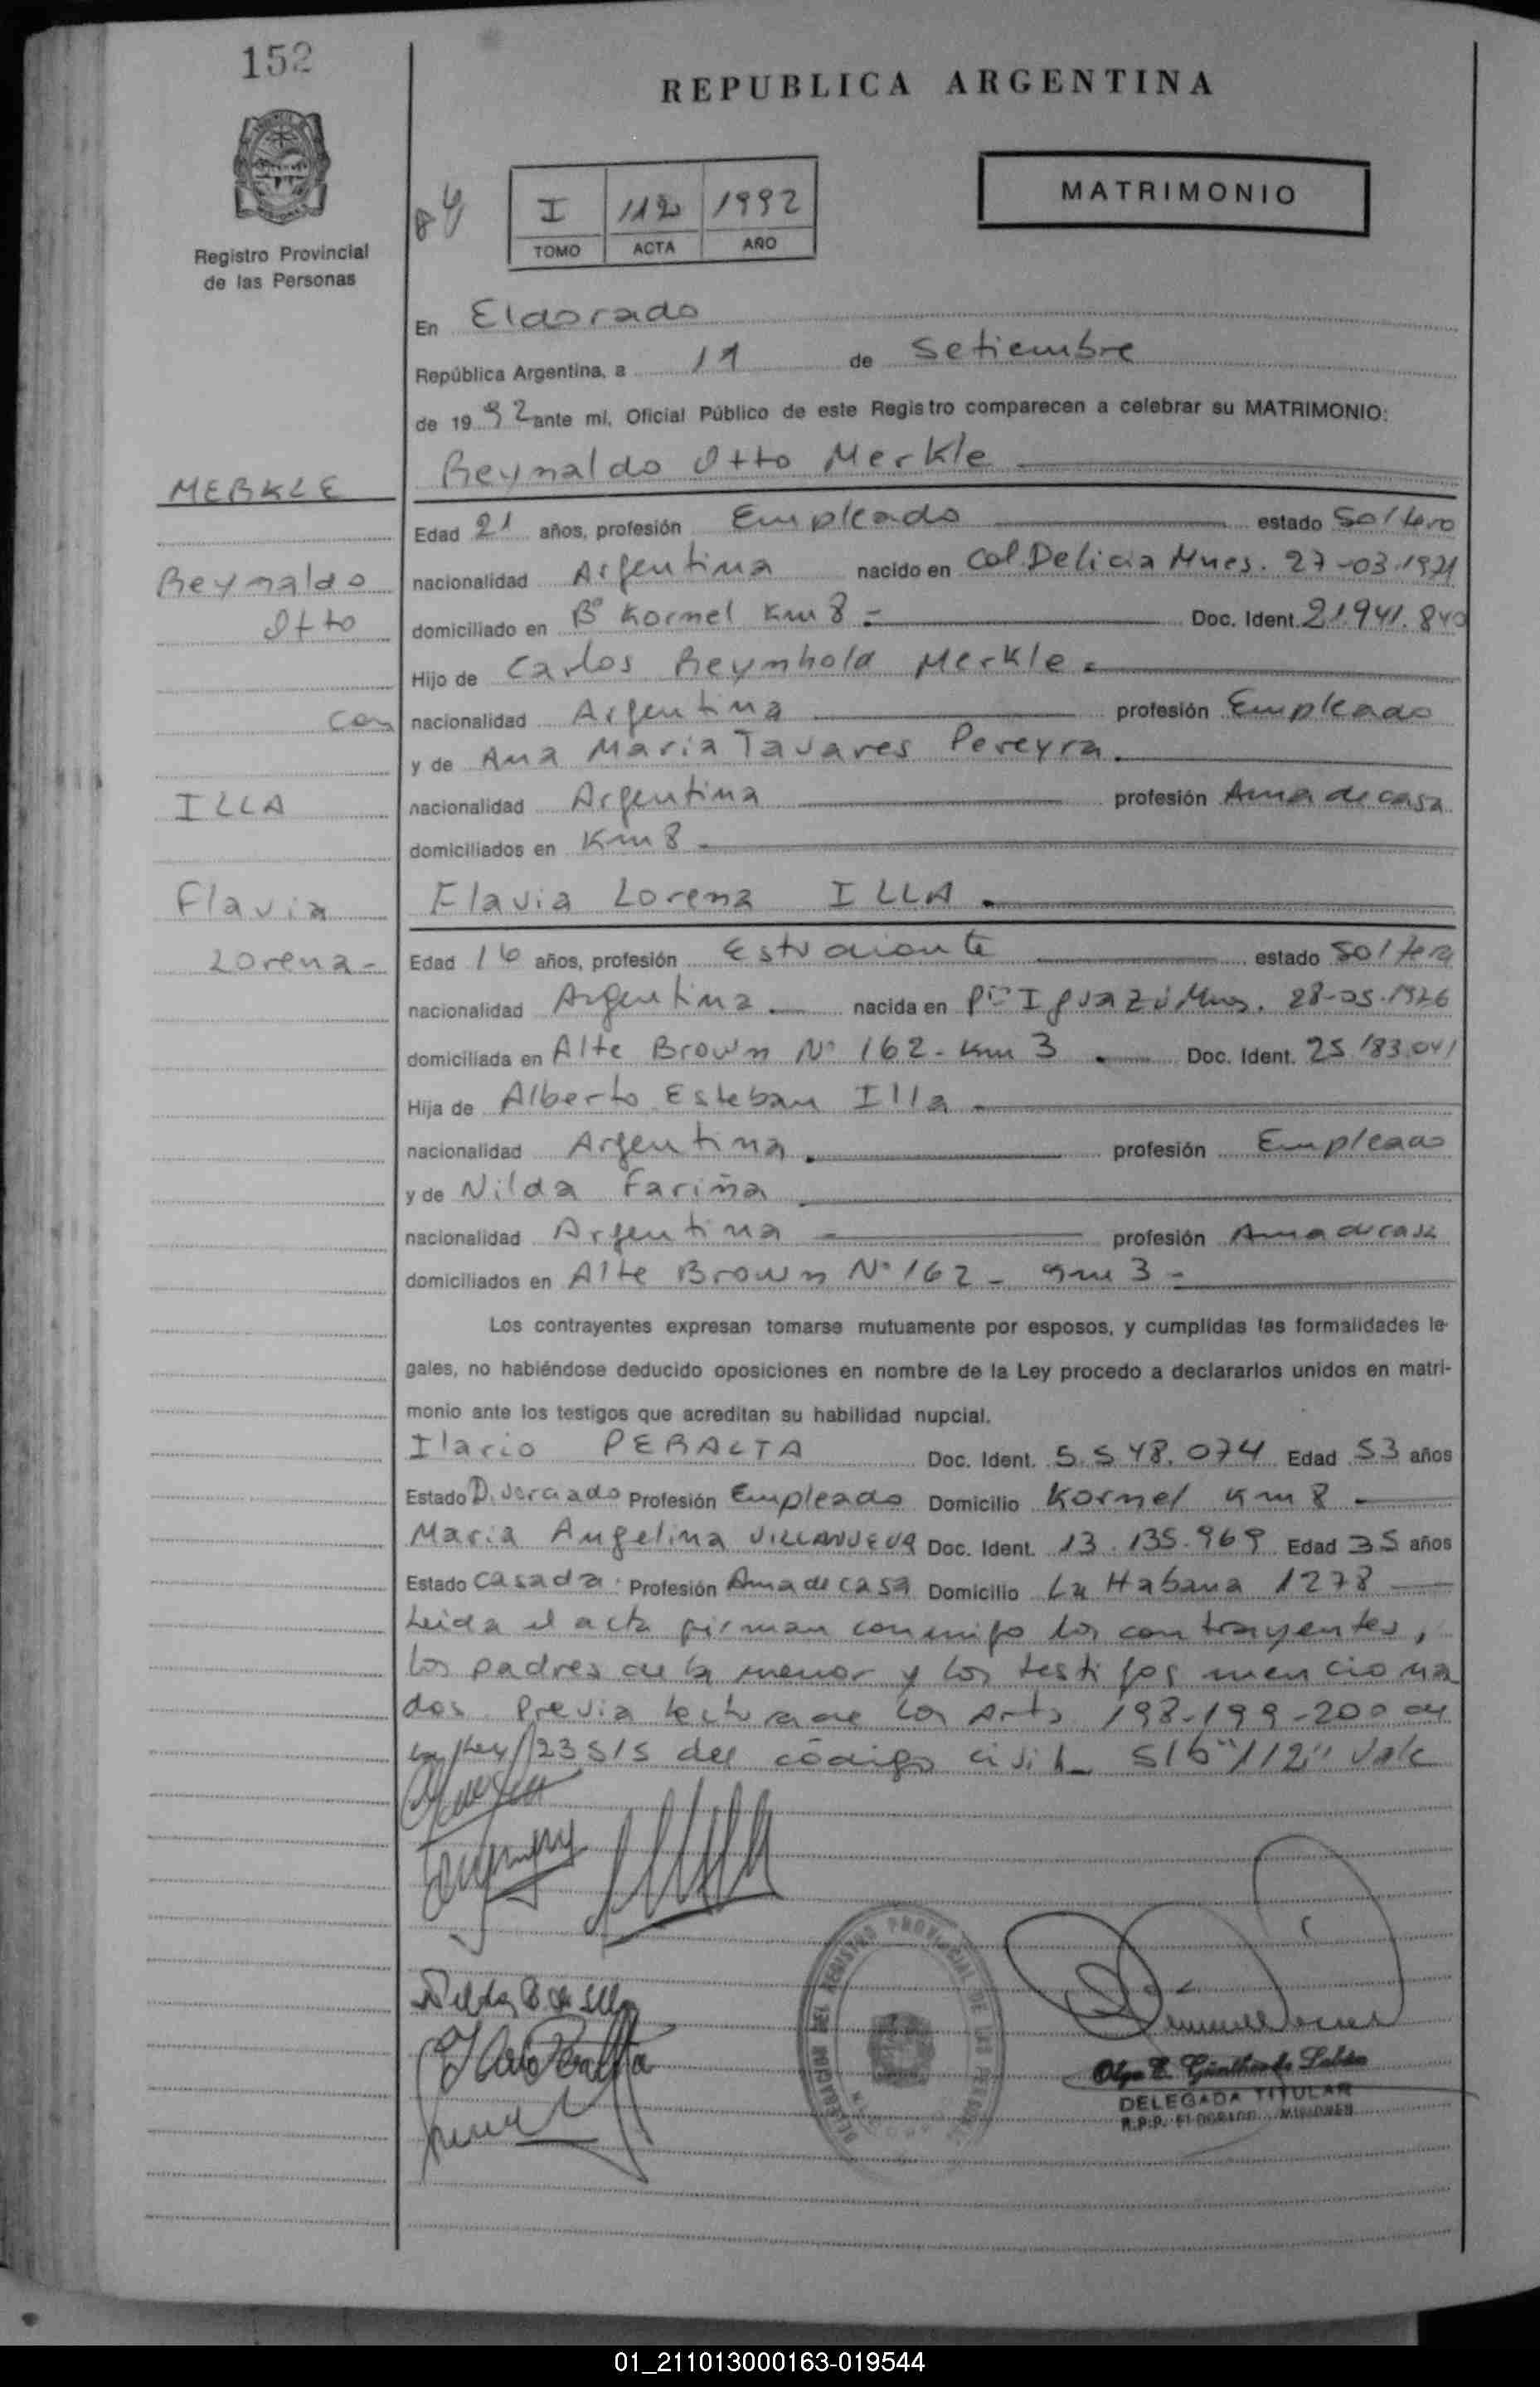 152
REPUBLICA ARGENTINA
MATRIMONIO
84
I 112 1992
TOMO ACTA AÑO
Registro Provincial
de las Personas
En Eldorado
República Argentina, a 11 de Setiembre
de 1992 ante mi, Oficial Público de este Registro comparecen a celebrar su MATRIMONIO:
Reynaldo Otto Merkle
MERKLE
Edad 21 años, profesión Empleado estado Soltero
Reynaldo
nacionalidad Argentina nacido en Col. Delicia Mnes. 27-03-1971
Otto
domiciliado en Bº Kornel Km 8 = Doc. Ident. 21.941.840
Hijo de Carlos Reynhold Merkle.
con
nacionalidad Argentina profesión Empleado
y de Ana Maria Tavares Pereyra.
ILLA
nacionalidad Argentina profesión Ama de casa
domiciliados en Km 8
Flavia
Flavia Lorena ILLA.
Lorena-
Edad 16 años, profesión Estudiante estado Soltera
nacionalidad Argentina. nacida en Pto Iguazú Mnes. 28-05-1976
domiciliada en Alte Brown Nº 162 - Km 3. Doc. Ident. 25.183.041
Hija de Alberto Esteban Illa
nacionalidad Argentina. profesión Empleado
y de Nilda Fariña
nacionalidad Argentina profesión Ama de casa
domiciliados en Alte Brown Nº 162 - Km 3 -
Los contrayentes expresan tomarse mutuamente por esposos, y cumplidas las formalidades le-
gales, no habiéndose deducido oposiciones en nombre de la Ley procedo a declararlos unidos en matri-
monio ante los testigos que acreditan su habilidad nupcial.
Ilario PERALTA Doc. Ident. 5.548.074 Edad 53 años
Estado Divorciado Profesión Empleado Domicilio Kornel Km 8
Maria Angelina VILLANUEVA Doc. Ident. 13.135.969 Edad 35 años
Estado Casada. Profesión Ama de casa Domicilio La Habana 1278
Leida el acta firman conmigo los contrayentes,
los padres de la menor y los testigos menciona
dos. Previa lectura de los Arts 198-199-200 de
la Ley 23515 del código civil_ S/b "112" Vale
REGISTRO PROVINCIAL DE LAS PERSONAS
DELEGACION
Olga E. Günther de Lebán
DELEGADA TITULAR
R.P.P. ELDORADO MISIONES
01_211013000163-019544